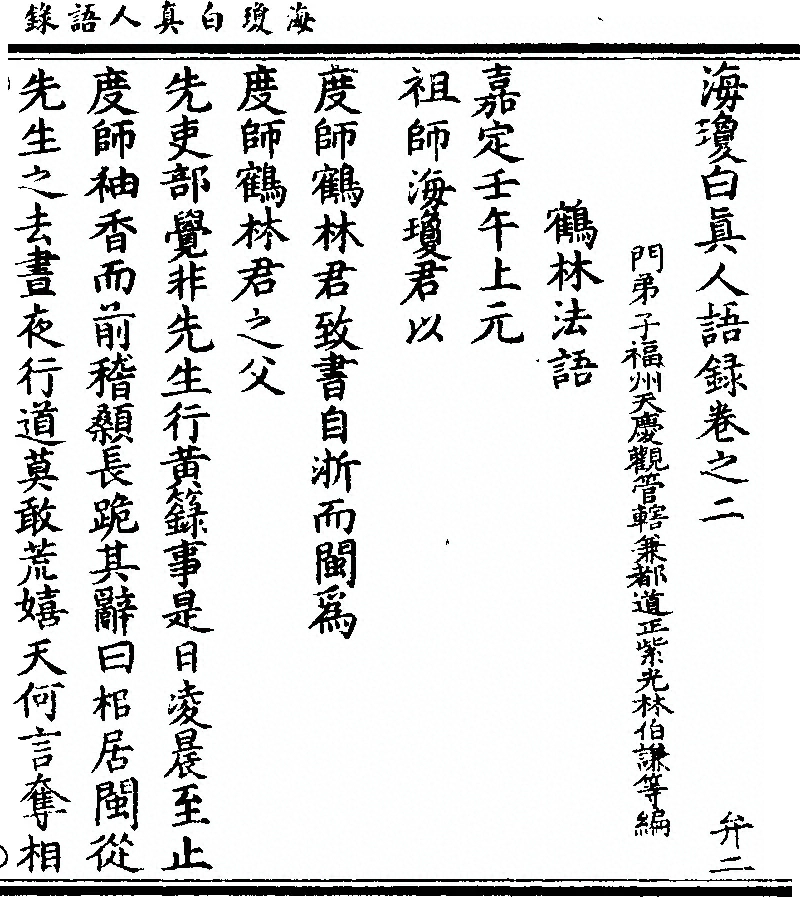 海瓊白真人語錄
海瓊白眞人語錄卷之二
弁二
門弟子福州天慶觀管轄兼都道正紫光林伯謙等編
鶴林法語
嘉定壬午上元
祖師海瓊君以
度師鶴林君致書自浙而閩爲
度師鶴林君之父
先吏部覺非先生行黃籙事是日凌晨至止
度師秞香而前稽顙長跪其辭曰柖居閩從
先生之去晝夜行道莫敢荒嬉天何言奪相